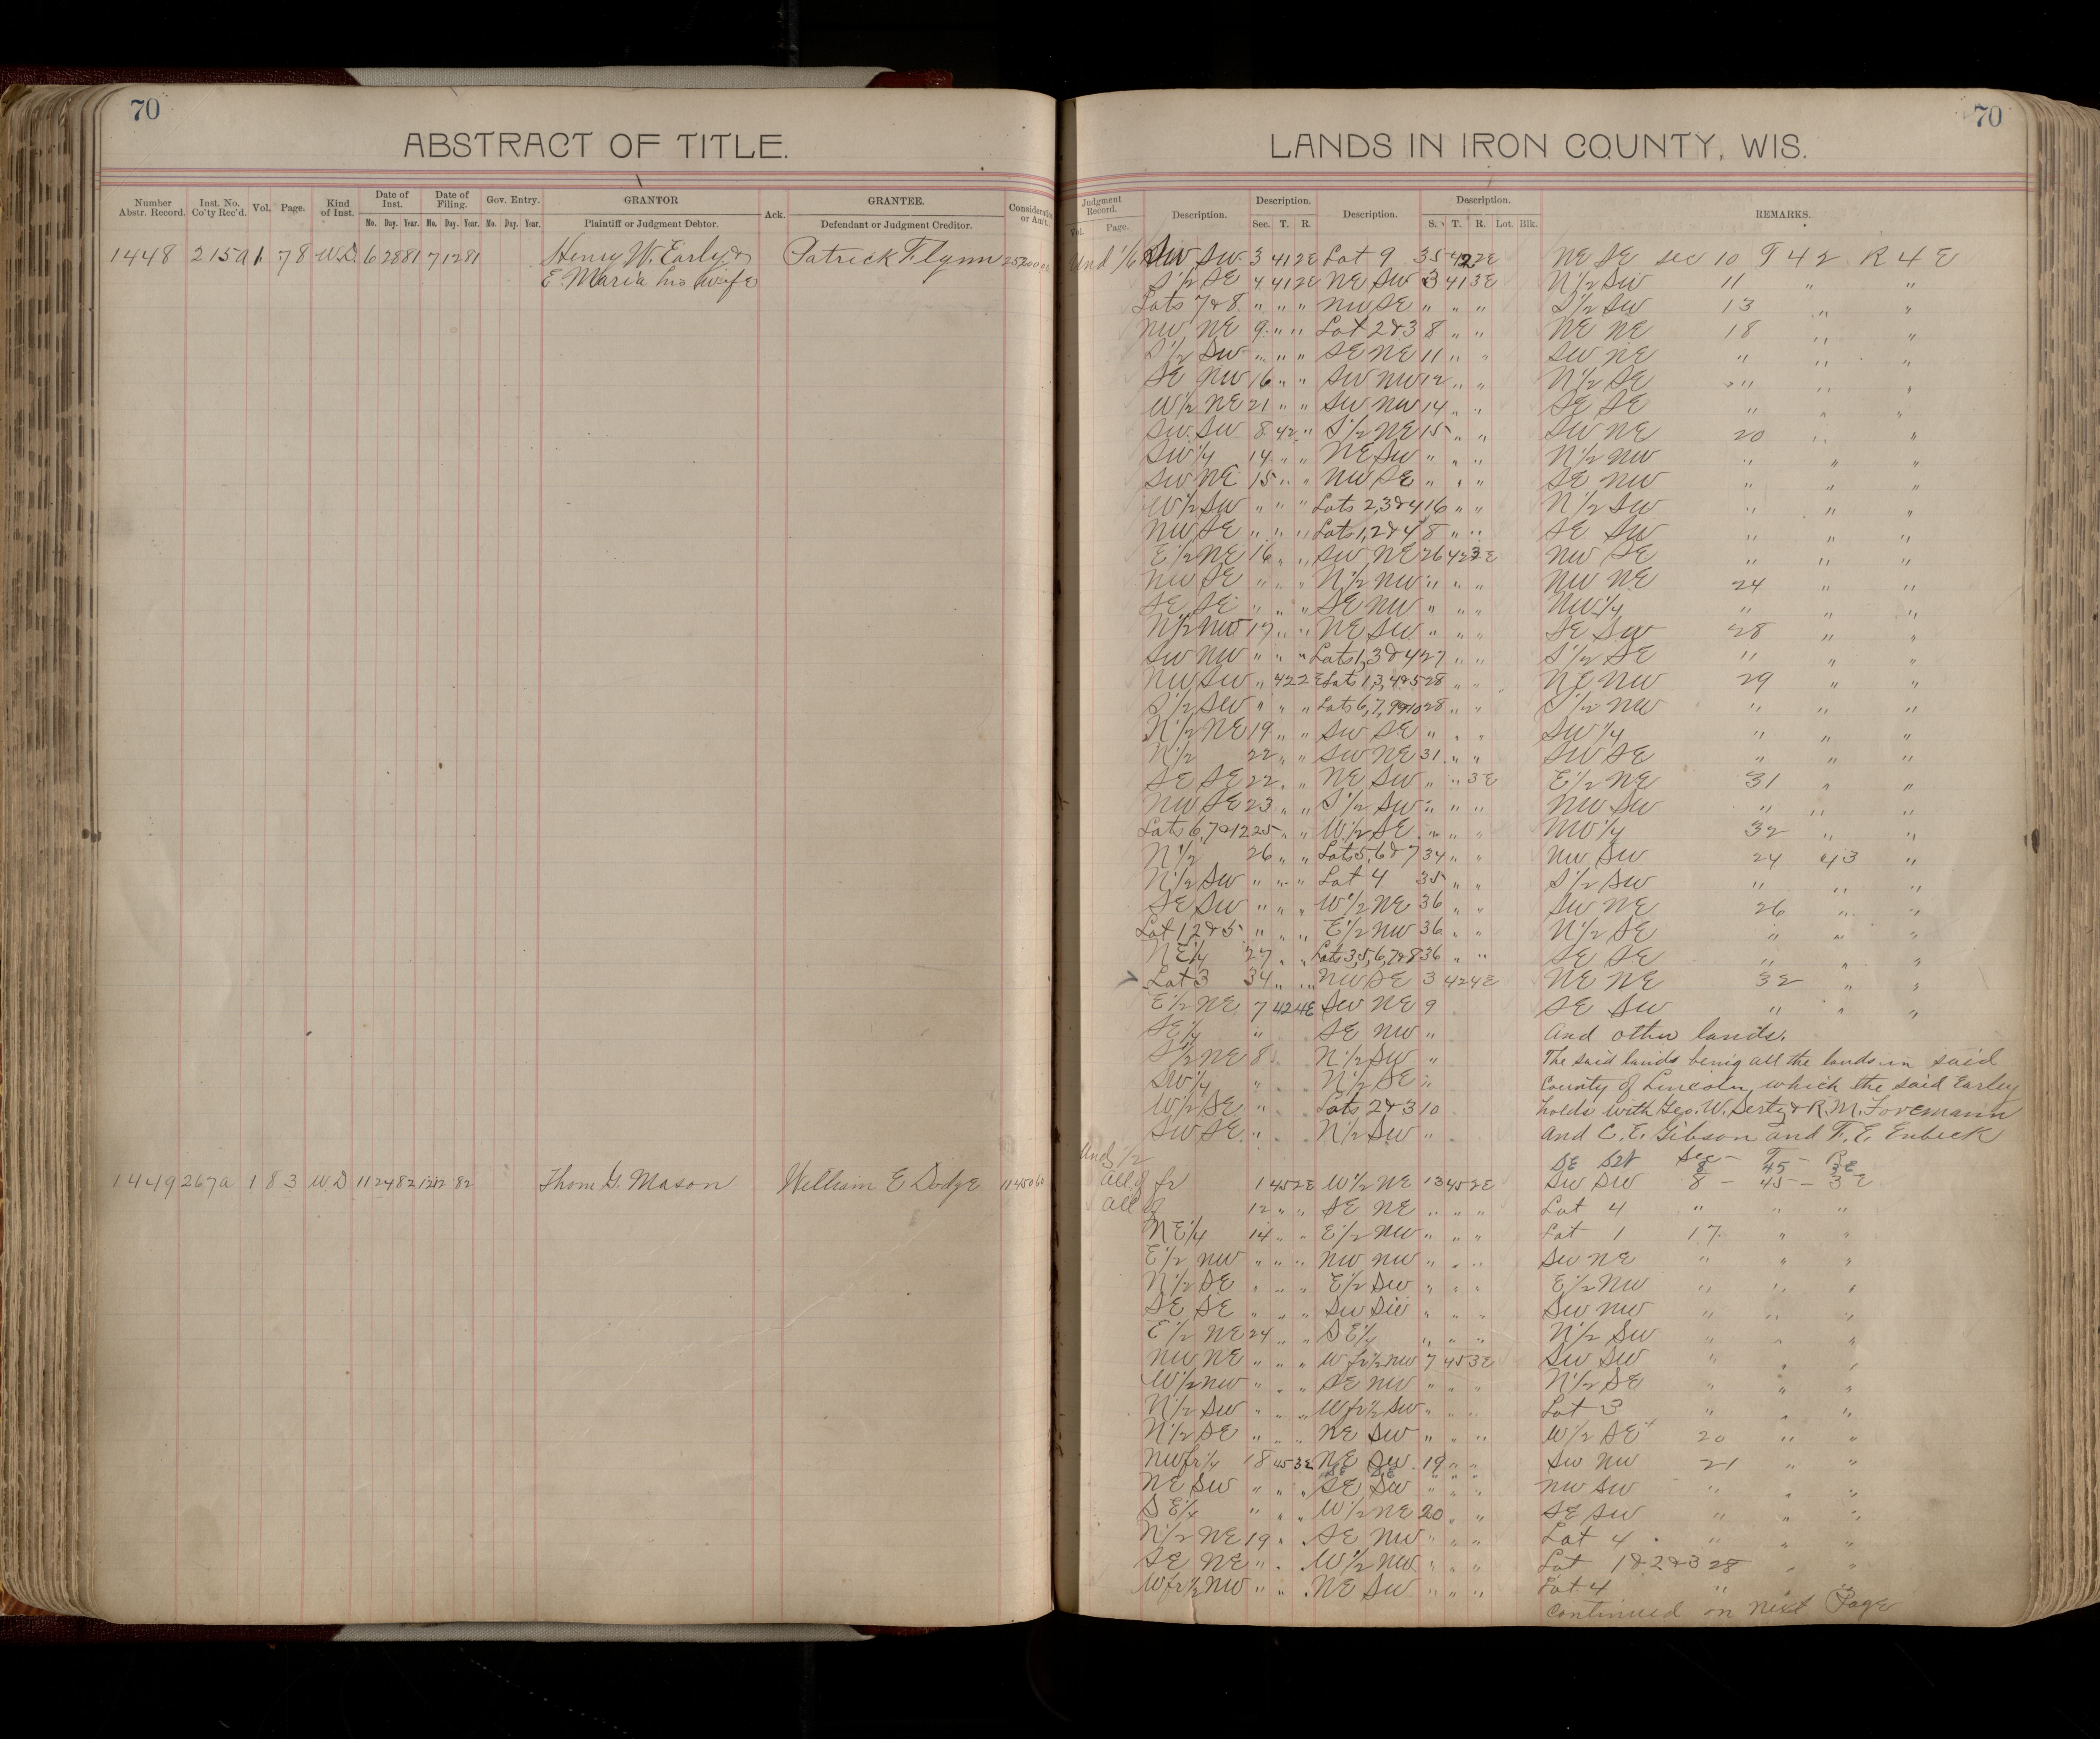 70
ABSTRACT OF TITLE.
Number Abstr. Record. Inst. No. Co'ty Rec'd. Vol. Page. Kind of Inst. Date of Inst. Mo. Day. Year. Date of Filing. Mo. Day. Year. Gov. Entry. Mo. Day. Year. GRANTOR Plaintiff or Judgment Debtor. Ack. GRANTEE. Defendant or Judgment Creditor. Consideration or Am't.
1448 215a 1 78 W.D. 6 28 81 7 12 81 Henry W. Early & Patrick Flynn
E. Maria his wife
1449 267a 1 83 W.D 11 24 82 12 82 Thom G. Mason William E Dodge
70
LANDS IN IRON COUNTY, WIS.
Judgment Record. Vol. Page. Description. Description. Sec. T. R. Description. Description. S. T. R. Lot. Blk. REMARKS.
Und 1/6 SW SW 3 41 2E Lot 9 35 42 2E NE SE sec 10 T 42 R 4 E
S 1/2 SE 4 41 2E NE SW 3 41 3E N 1/2 SW 11 " "
Lots 7 & 8 " " " NW SE " " " S 1/2 SW 13 " "
NW NE 9 " " Lot 2 & 3 8 " " NE NE 18 " "
S 1/2 SW " " " SE NE 11 " " SW NE " " "
SE NW 16 " " SW NW 12 " " N 1/2 SE " " "
W 1/2 NE 21 " " SW NW 14 " " SE SE " " "
SW SW 8 42 " S 1/2 NE 15 " " SW NE 20 " "
SW 1/4 14 " " NE SW " " " N 1/2 NW " " "
SW NE 15 " " NW SE " " " SE NW " " "
W 1/2 SW " " " Lots 2,3 & 4 16 " " N 1/2 SW " " "
NW SE " " " Lots 1,2 & 4 8 " " SE SW " " "
E 1/2 NE 16 " " SW NE 26 42 3E NW SE " " "
NW SE " " " N 1/2 NW " " " NW NE 24 " "
SE SE " " " SE NW " " " NW 1/4 " " "
N 1/2 NW 17 " " NE SW " " " SE SW 28 " "
SW NW " " " Lots 1,3 & 4 27 " " S 1/2 SE " " "
NW SW " 42 2E Lots 1,3,4 & 5 28 " " NE NW 29 " "
S 1/2 SW " " " Lots 6,7,9 & 10 28 " " S 1/2 NW " " "
N 1/2 NE 19 " " SW SE " " " SW 1/4 " " "
N 1/2 22 " " SW NE 31 " " SW SE " " "
SE SE 22 " " NE SW " " 3E E 1/2 NE 31 " "
NW SE 23 " " S 1/2 SW " " " NW SW " " "
Lots 6,7 & 12 25 " " W 1/2 SE " " " NW 1/4 32 " "
N 1/2 26 " " Lots 5,6 & 7 34 " " NW SW 24 43 "
N 1/2 SW " " " Lot 4 35 " " S 1/2 SW " " "
SE SW " " " W 1/2 NE 36 " " SW NE 26 " "
Lot 12 & 5 " " " E 1/2 NW 36 " " N 1/2 SE " " "
NE 1/4 27 " " Lots 3,5,6,7 & 8 36 " " SE SE " " "
Lot 3 34 " " NW SE 3 42 4E NE NE 32 " "
E 1/2 NE 7 42 4E SW NE 9 SE SW " " "
SE 1/4 " SE NW " And other lands.
S 1/2 NE 8 N 1/2 SW " The said lands being all the lands in said
SW 1/4 " N 1/2 SE " County of Lincoln, which the said Earley
W 1/2 SE " Lots 2 & 3 10 holds with Geo. W. & R. M. Foremann
SW SE " N 1/2 SW " and C. E. Gibson and F. E.
Und 1/2 SE SW Sec 8 T 45 R 3E
All of fr 1 45 2E W 1/2 NE 13 45 2E SW SW 8 - 45 - 3E
all of 12 " " SE NE " " " Lot 4 " " "
NE 1/4 14 " " E 1/2 NW " " " Lot 1 17 " "
E 1/2 NW " " " NW NW " " " SW NE " " "
N 1/2 SE " " " E 1/2 SW " " " E 1/2 NW " " "
SE SE " " " SW SW " " " SW NW " " "
E 1/2 NE 24 " " SE 1/4 " " " N 1/2 SW " " "
NW NE " " " W fr 1/2 NW 7 45 3E SW SW " " "
W 1/2 NW " " " SE NW " " " N 1/2 SE " " "
N 1/2 SW " " " W fr 1/2 SW " " " Lot 3 " " "
N 1/2 SE " " " NE SW " " " W 1/2 SE 20 " "
NW fr 1/4 18 45 3E NE SW 19 " " SW NW 21 " "
SE SE " " "
NE SW " " " SE SW " " " NW SW " " "
SE 1/4 " " " W 1/2 NE 20 " " SE SW " " "
N 1/2 NE 19 " " SE NW " " " Lot 4 " " "
SE NE " " " W 1/2 NW " " " Lot 1 & 2 & 3 28 " "
W fr 1/2 NW " " " NE SW " " " Lot 4 " " "
Continued on next Page